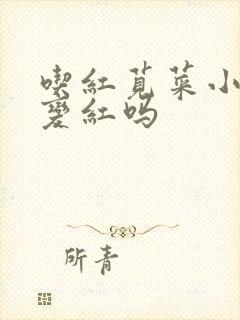 喫紅莧菜小
變紅嗎
所青